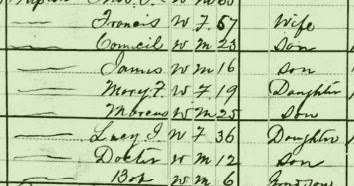 Francis W F 57 Wife
Council W M 23 Son
James W M 16 Son
Mary F. W F 19 Daughter
Marcus W M 25 Son
Lucy J. W F 36 Daughter
Doctor W M 12 Son
Bob W M 6 Grandson